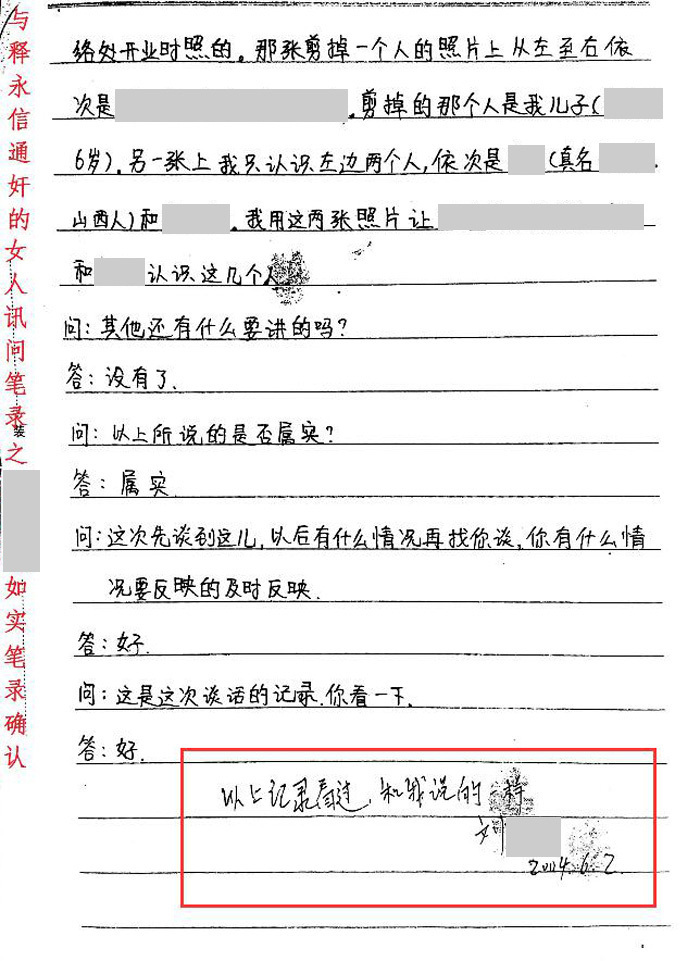 与释永信通奸的女人讯问笔录之
如实笔录确认
装
络处开业时照的。那张剪掉一个人的照片上从左至右依
次是 。剪掉的那个人是我儿子(
6岁)。另一张上我只认识左边两个人,依次是 (真名 .
山西人)和 。我用这两张照片让
和 认识这几个人
问:其他还有什么要讲的吗?
答:没有了.
问:以上所说的是否属实?
答:属实
问:这次先谈到这儿,以后有什么情况再找你谈,你有什么情
况要反映的及时反映.
答:好.
问:这是这次谈话的记录.你看一下.
答:好.
以上记录看过,和我说的一样
刘
2004.6.2